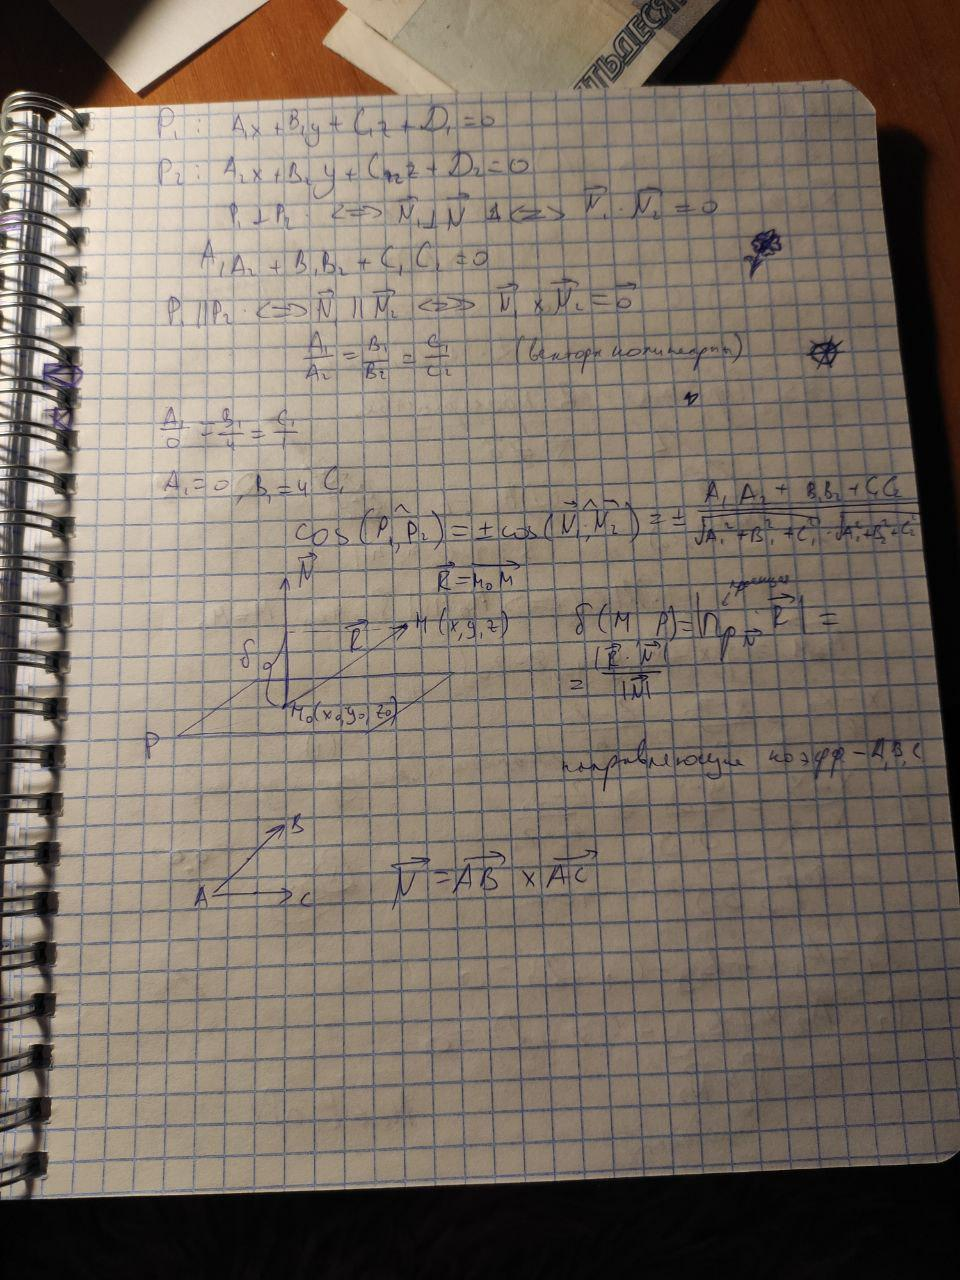 ПЯТЬДЕСЯТ
P₁: A₁x + B₁y + C₁z + D₁ = 0
P₂: A₂x + B₂y + C₂z + D₂ = 0
P₁ ⊥ P₂ <=> N⃗₁ ⊥ N⃗ <=> N⃗₁ · N⃗₂ = 0
A₁A₂ + B₁B₂ + C₁C₂ = 0
P₁ || P₂ <=> N⃗₁ || N⃗₂ <=> N⃗₁ × N⃗₂ = 0⃗
A₁/A₂ = B₁/B₂ = C₁/C₂ (вектора коллинеарны)
A₁/0 = B₁/4 = C₁/1
A₁ = 0, B₁ = 4C₁
cos(P₁^P₂) = ± cos(N⃗₁^N⃗₂) = ± (A₁A₂ + B₁B₂ + C₁C₂)/(√(A₁² + B₁² + C₁²) · √(A₂² + B₂² + C₂²))
N⃗
R⃗ = M₀M⃗
R⃗ M(x,y,z)
δ
M₀(x₀, y₀, z₀)
P
δ(M P) = |пр N⃗ R⃗| =
= |R⃗ · N⃗|/|N⃗|
направляющие коэфф – A,B,C
B
A C
N⃗ = AB⃗ × AC⃗